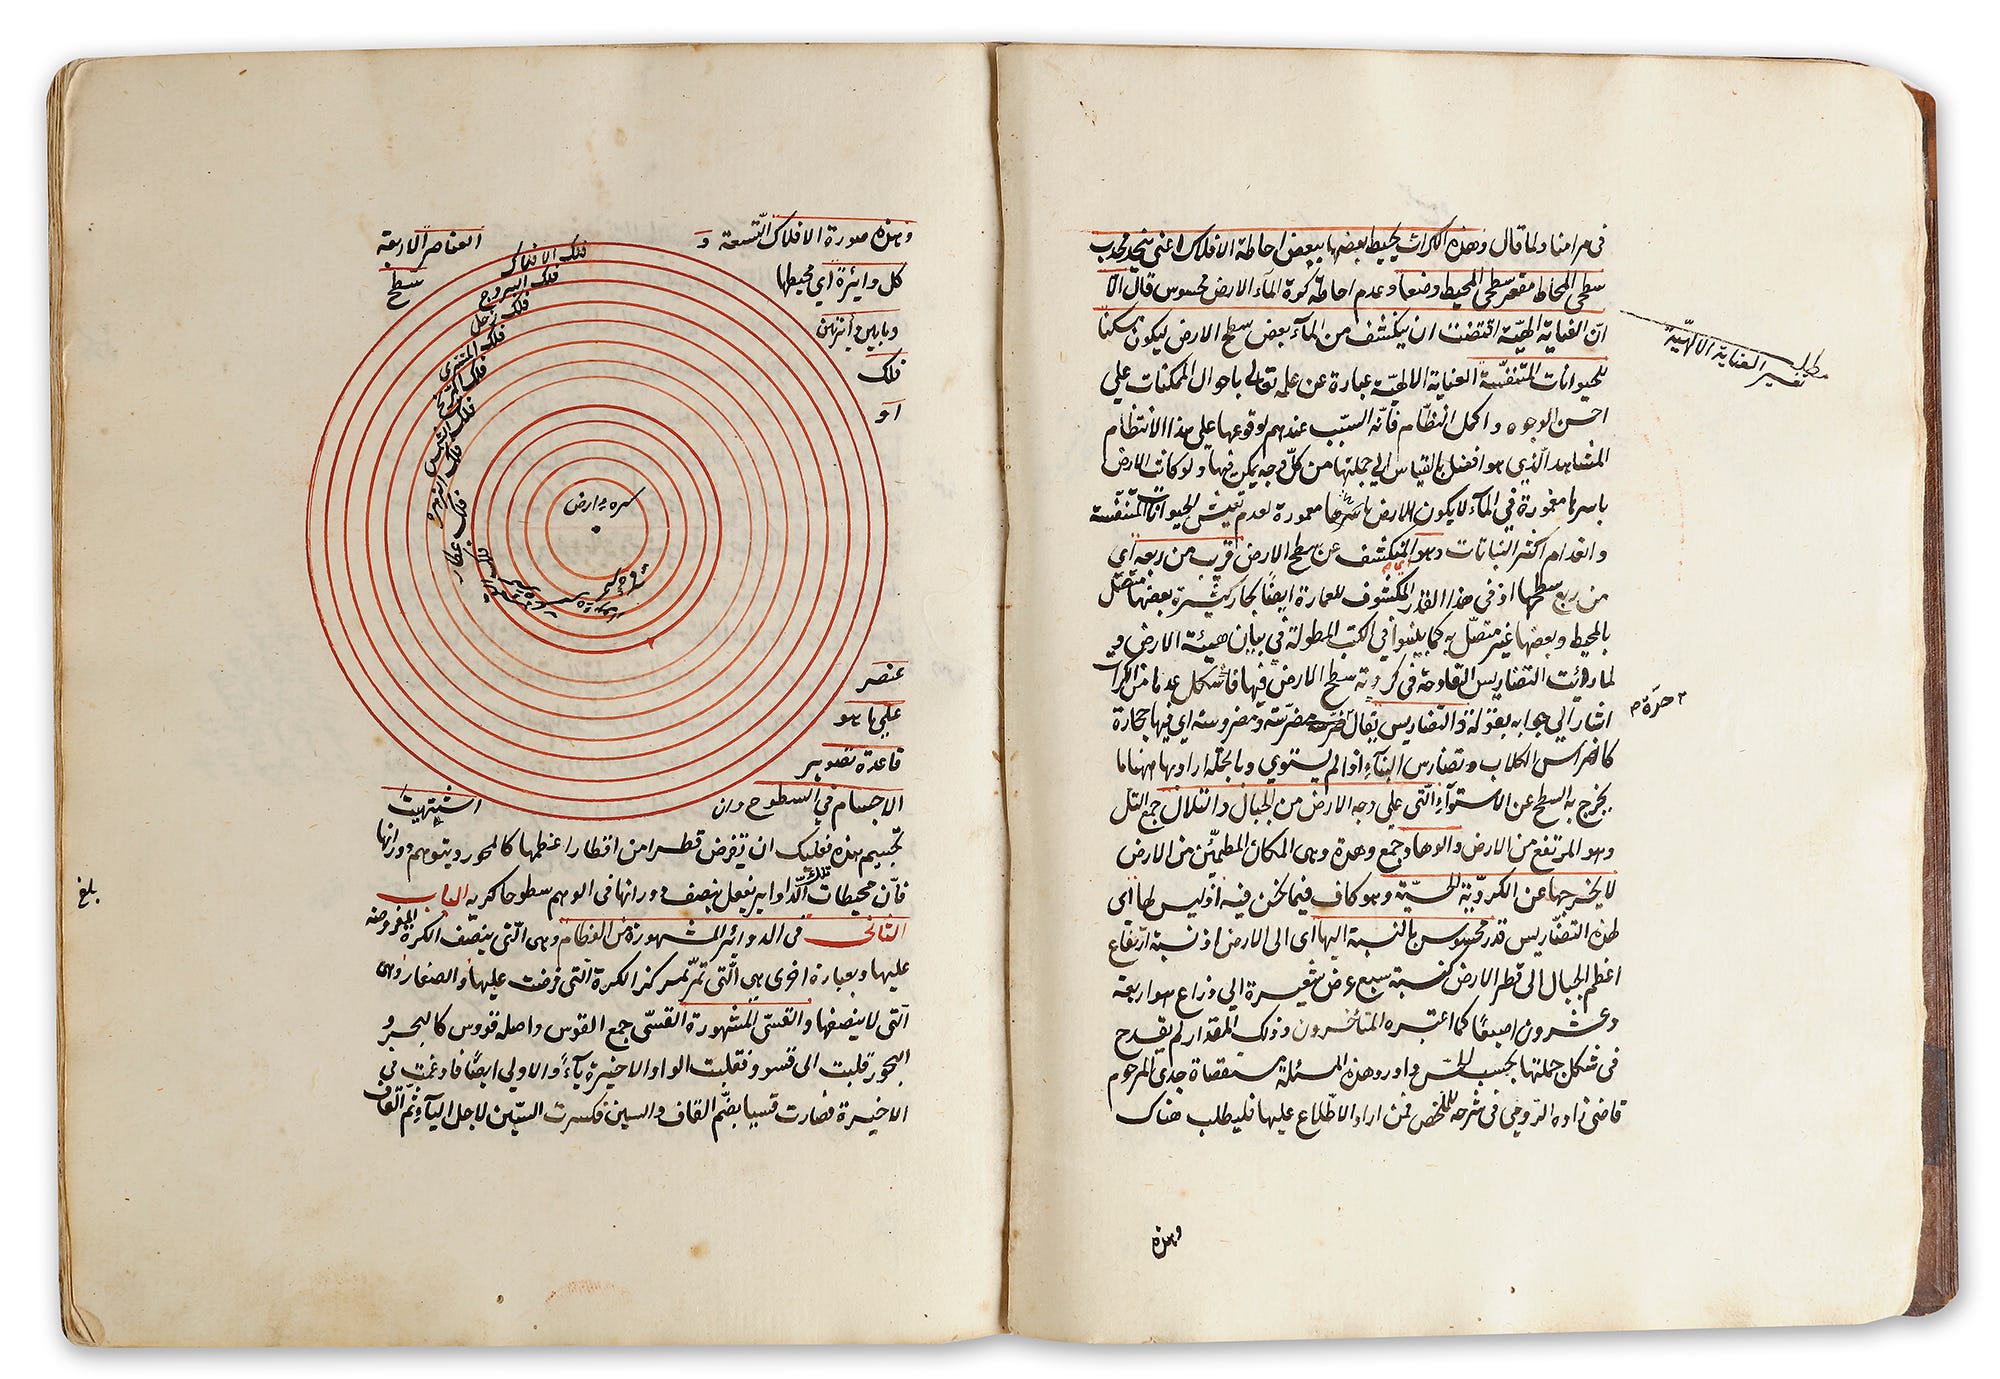 في مرامنا ولما قال وهذه الكرات يحيط بعضها ببعض احاطة الافلاك اعني محدب
سطحي المحاط مقعر سطحي المحيط وضعا وعدم احاطة كرة المآء الارض محسوس قال الا
انّ العناية الهيّة اقتضت ان ينكشف من المآء بعض سطح الارض ليكون مسكنا
للحيوانات المتنفّسة العناية الالهيّة عبارة عن علمه تعالى باحوال الممكنات علي
احسن الوجوه واكمل النظام فانّه السبّب عندهم لوقوعها علي هذا الانتظام
المشاهد الّذي هو افضل بالقياس الي جملتها من كلّ وجه يمكن فيها ولو كانت الارض
باسرها مغمورة في المآء لا يكون الارض معمورة لعدم تعيّش الحيوانات المتنفّسة
وانعدام اكثر النباتات وهو المنكشف عن سطح الارض قريب من ربعه أي
من ربع سطحها اذ في هذا القدر المكشوف للعمارة ايضًا بحار كثيرة بعضها متصّل
بالمحيط وبعضها غير متصّل به كما بيّنوا في الكتب المطولة في بيان هيئة الارض و
لما كانت التضاريس القادحة في كروية سطح الارض فيها فاشكل عدها من الكرات
اشار الي جوابه بقوله والتّضاريس يقال مضرّسة ومضروسة اي فيها حجارة
كاضراس الكلاب وتضارس البنآء اذا لم يستوي وبالجملة اراد بها ههنا ما
يخرج به السطح عن الاستوآء الّتي علي وجه الارض من الجبال والتلال جمع التل
وهو المرتفع من الارض والوهاد جمع وهدة وهي المكان المطمئّن من الارض
لا يخرجها عن الكرويّة الحسيّة وهو كاف فيما نحن فيه اذ ليس لها أى
لهذه التضاريس قدر محسوس بالنسبة اليها أى الى الارض اذ نسبة ارتفاع
اعظم الجبال الى قطر الارض كنسبة سبع عرض شعيرة الي ذراع هو اربعة
وعشرون اصبعًا كما اعتبره المتأخرون وذلك المقدار لم يقدح
في شكل جملتها بحسب الحس واورد هذه المسئلة مستقصاة جدى المرحوم
قاضي زاده الرومي في شرحه للملخص فمن اراد الاطّلاع عليها فليطلب هناك
مطلب تفسير العناية الالهيّة
وهذه
وهذه صورة الافلاك التّسعة و العناصر الاربعة
كل دائرة اي محيطها سطح
وما بين دائرتين
فلك
او
عنصر
علي ما هو
قاعدة تصوير
الاجسام في السطوح وان اشتهيت
تجسيم هذه فعليك ان تفرض قطرا من اقطار اعظمها كالمحور ويتوهم دورانها
فانّ محيطات تلك الدوايرتفعل بنصف دورانها في الوهم سطوحا كريه الباب
الثاني في الدوائر المشهورة من العظام وهي الّتي ينصف الكرة المفروضة
عليها وبعبارة اخرى هي الّتي تمرّ بمركز الكرة الّتي فرضت عليها والصغار وهي
الّتي لا ينصفها والقسّي المشهورة القسّى جمع القوس واصله قووس كالبحر و
البحور قلبت الى قسوو فقلبت الواو الاخيرة يآءً والاولي ايضًا فادغمت في
الاخيرة فصارت قسيا بضّم القاف والسين فكسرت السّين لاجل اليآء ثمّ القاف
فلك الافلاك
فلك البروج
فلك زحل
فلك المشتري
فلك المريخ
فلك الشمس
فلك الزهره
فلك عطارد
فلك القمر
كره ء ارض
بلغ